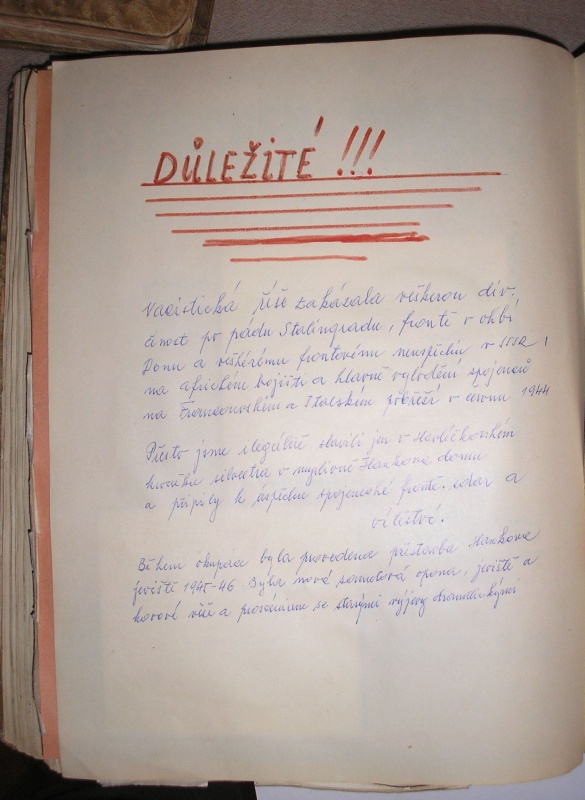 DŮLEŽITÉ !!!
Nacistická říše zakázala veškerou div.
činost po pádu Stalingradu, frontě v ohbí
Donu a veškerému frontovému neuspěchu v SSSR,
na africkém bojišti a hlavně vylodění spojenců
na Francouzském a Italském pobřeží v červnu 1944
Přesto jsme ilegálně slavili jen v Havlíčkovském
kroužku silvestra v myslivně Hankova domu
a připily k úspěchu spojenecké frontě. zdar a
vítěství.
Během okupace byla provedena přestavba Hankova
jeviště 1945-46. Byla nová sametová opona, jeviště a
kovové věže a proscenium se starými výjevy dramatickými